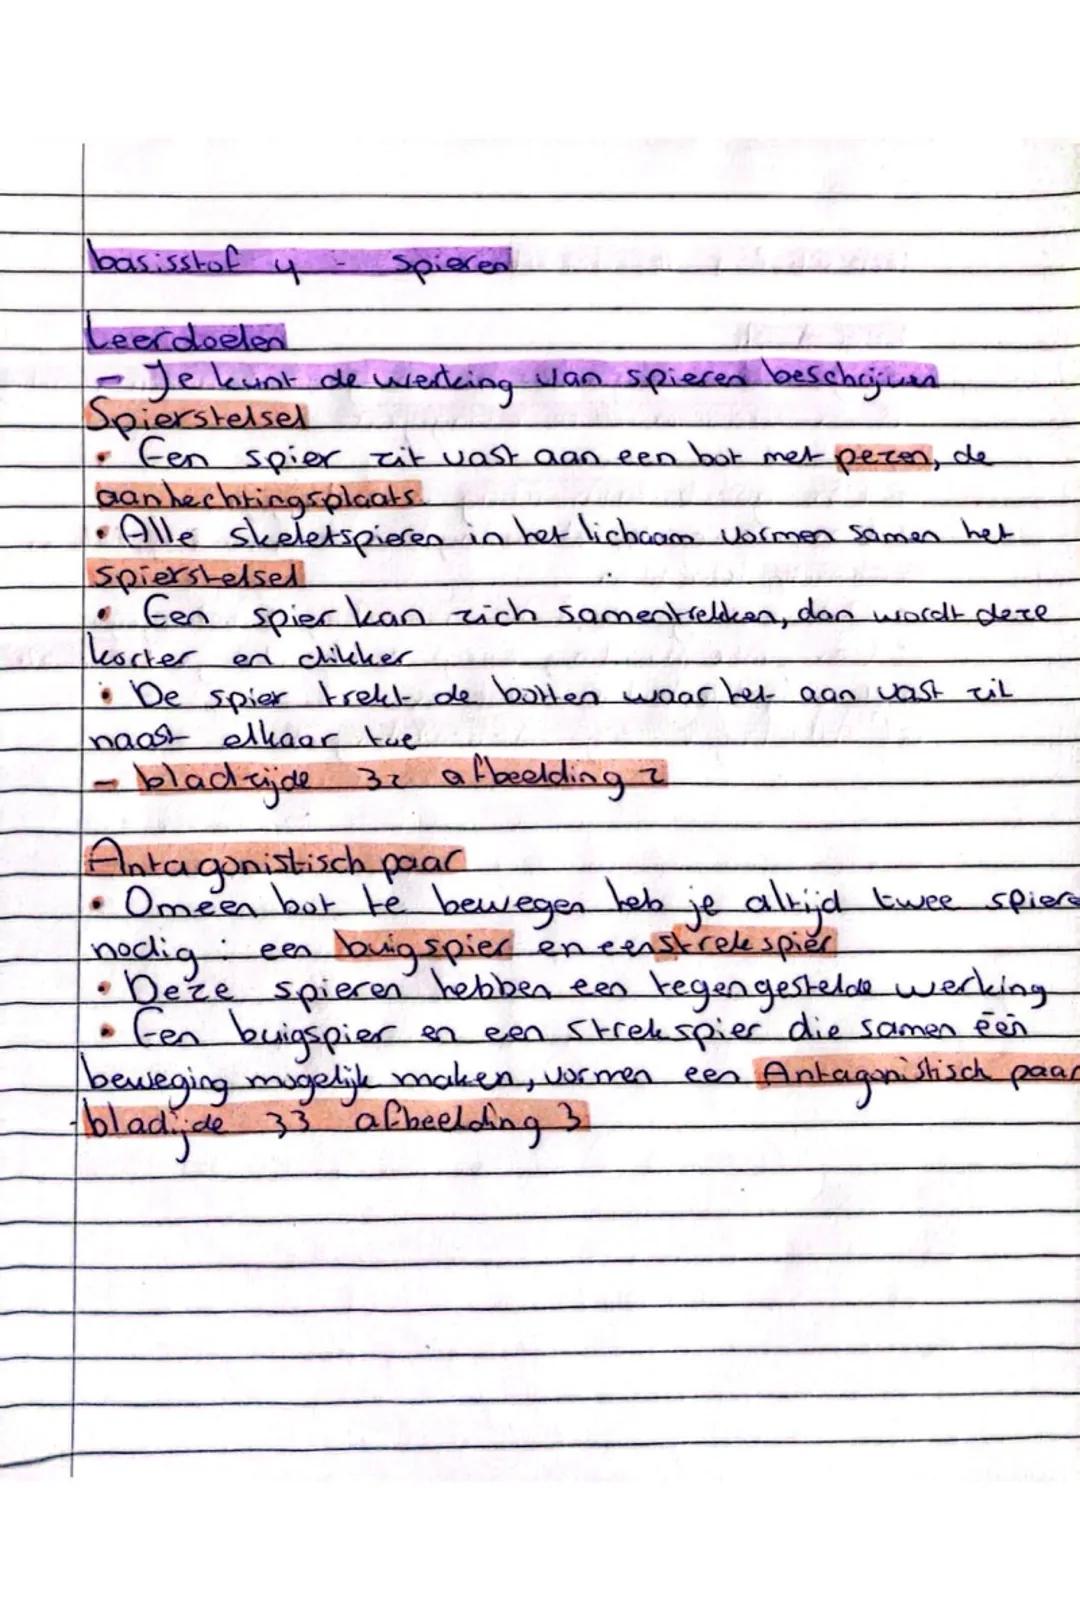 basisstof 4 - spieren
Leerdoelen
- Je kunt de werking van spieren beschrijven
Spierstelsel
• Een spier zit vast aan een bot met pezen, de
aanhechtingsplaats.
• Alle skeletspieren in het lichaam vormen samen het
spierstelsel
• Een spier kan zich samentrekken, dan wordt deze
korter en dikker
• De spier trekt de botten waar het aan vast zit
naast elkaar toe
- bladzijde 32 afbeelding 2
Antagonistisch paar
• Om een bot te bewegen heb je altijd twee spiere
nodig: een buigspier en een strekspier
• Deze spieren hebben een tegengestelde werking
• Een buigspier en een strekspier die samen één
beweging mogelijk maken, vormen een Antagonistisch paar
- bladijde 33 afbeelding 3